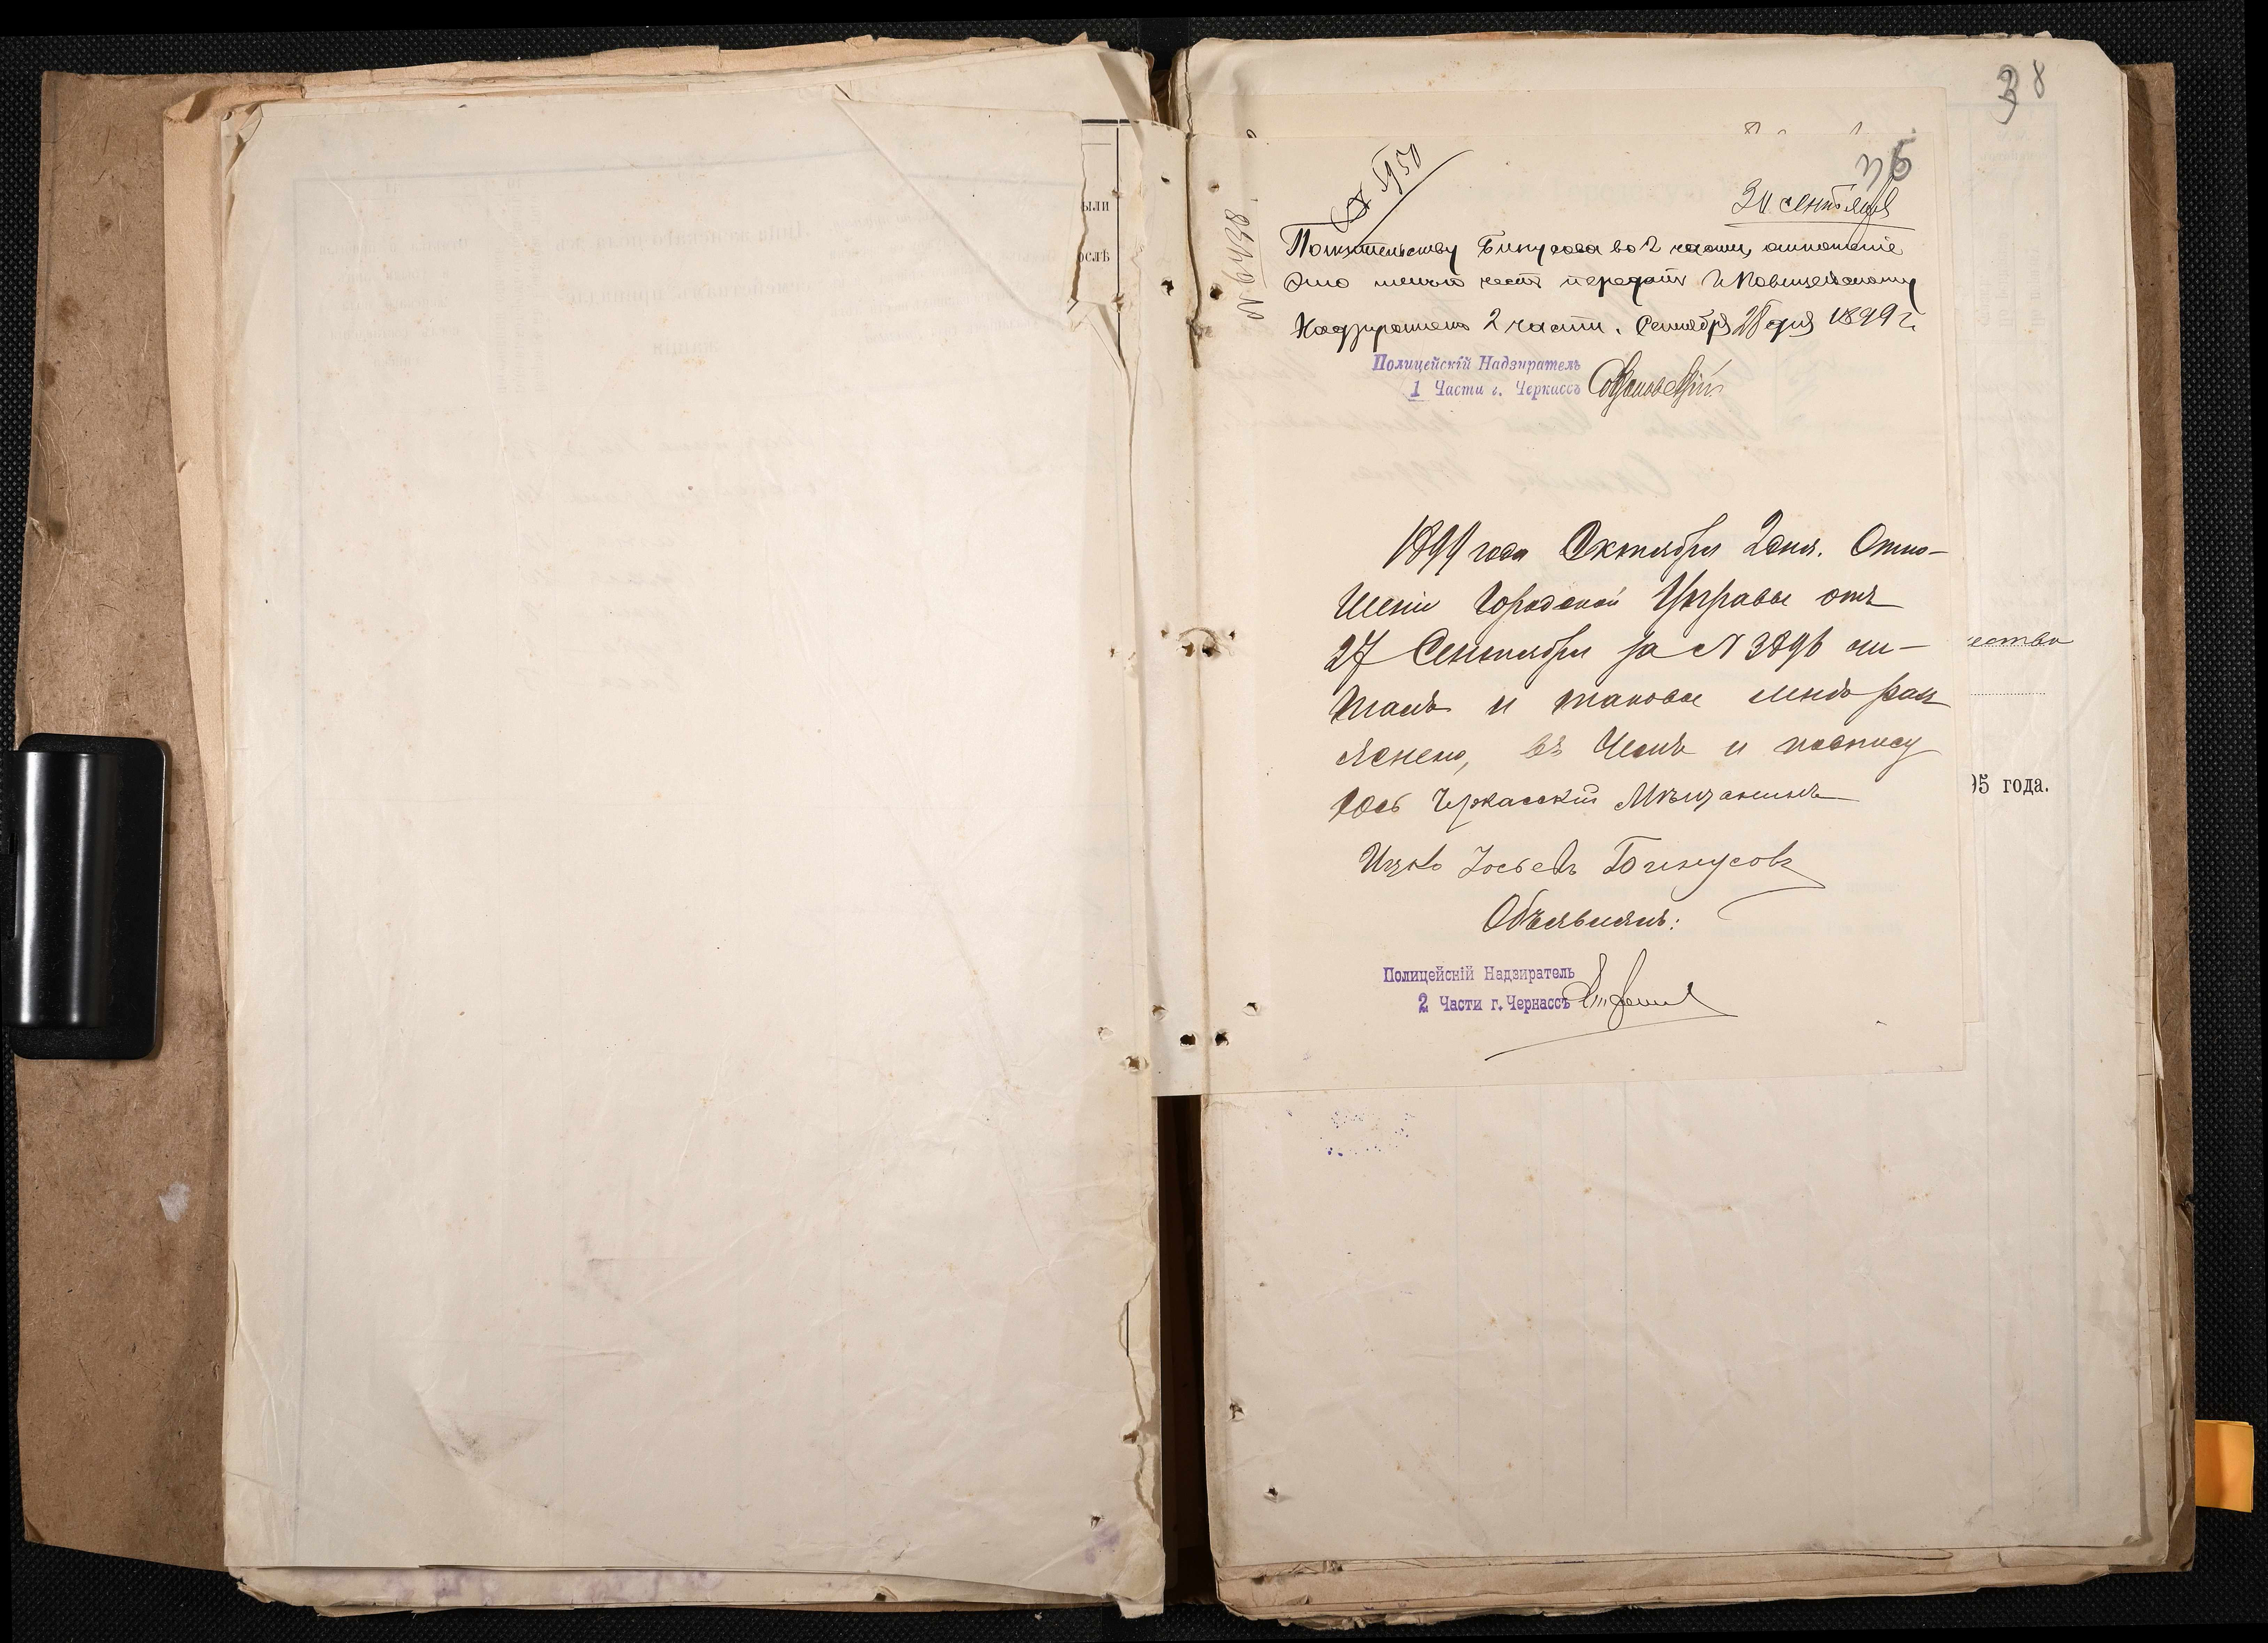 ыли
ослѣ
38
36
№ 5950
30 сентября
№ 6438
Пожительству Бинусова во 2 части, отношеніе
это имѣю честь передать г. Полицейскому
Надзирателю 2 части. Сентября 28 дня 1899 г.
Полицейскій Надзиратель
1 Части г. Черкассъ
1899 года Октября 2 дня. Отно-
шеніе Городской Управы отъ
27 Сентября за № 3896 чи-
талъ и таковое мнѣ раз
яснено, въ чемъ и подпису
юсь Черкасский Мѣщанинъ
Ицко Іосьевъ Бинусовъ
Объявилъ:
Полицейскій Надзиратель
2 Части г. Черкассъ
ество
95 года.